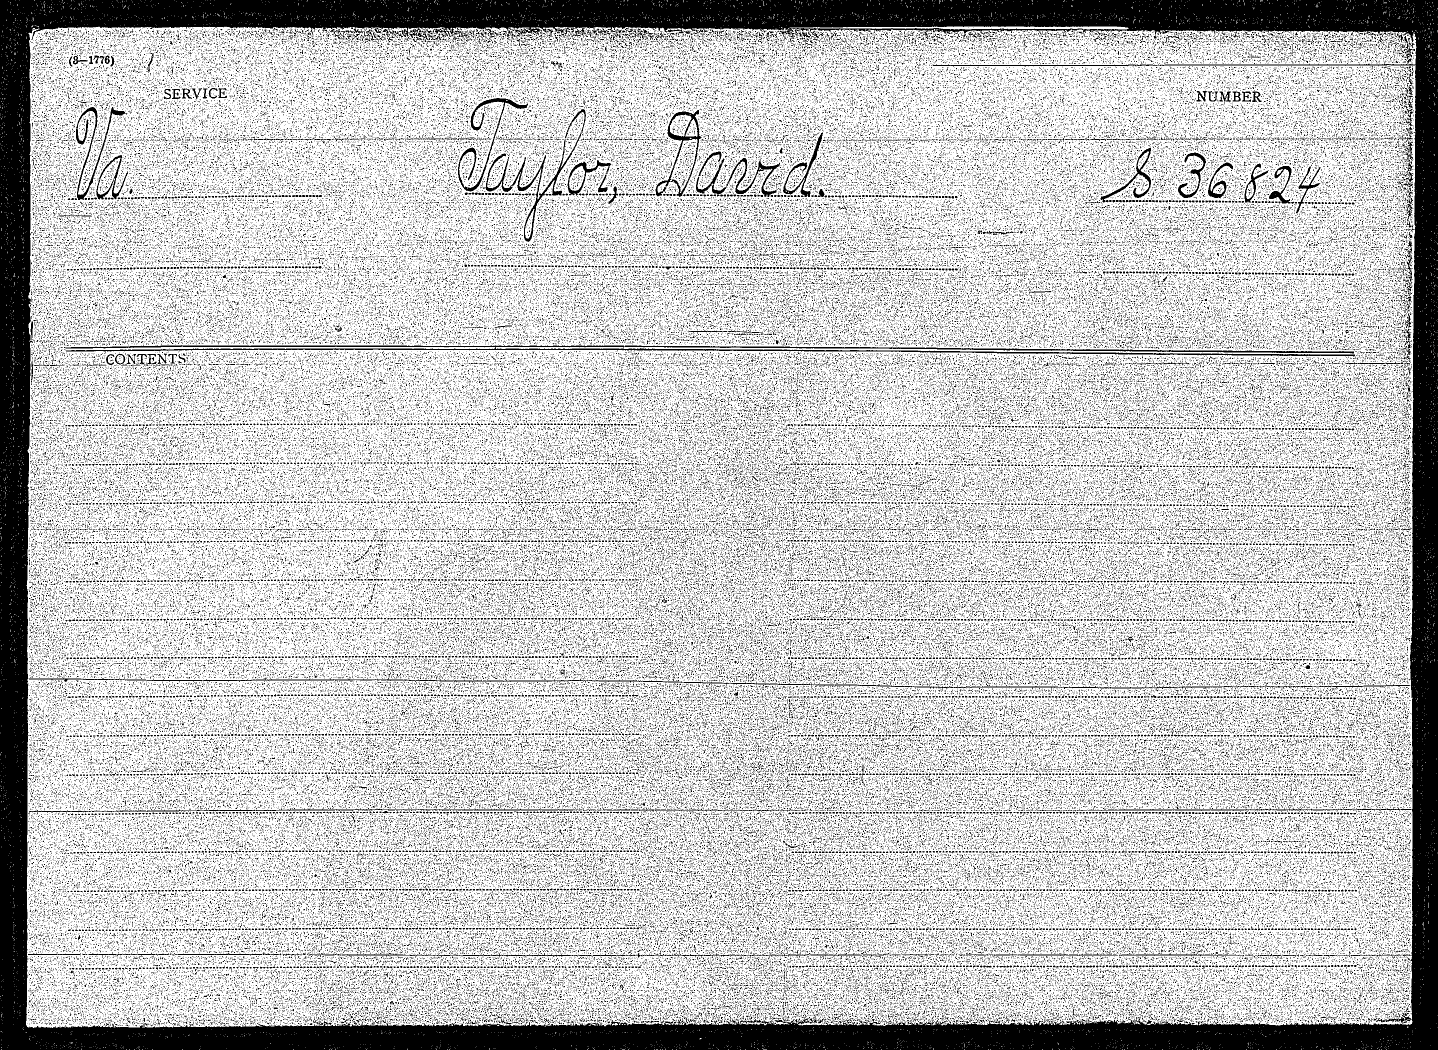 (3—1776)
SERVICE
NUMBER
Va.
Taylor, David.
S 36824
CONTENTS